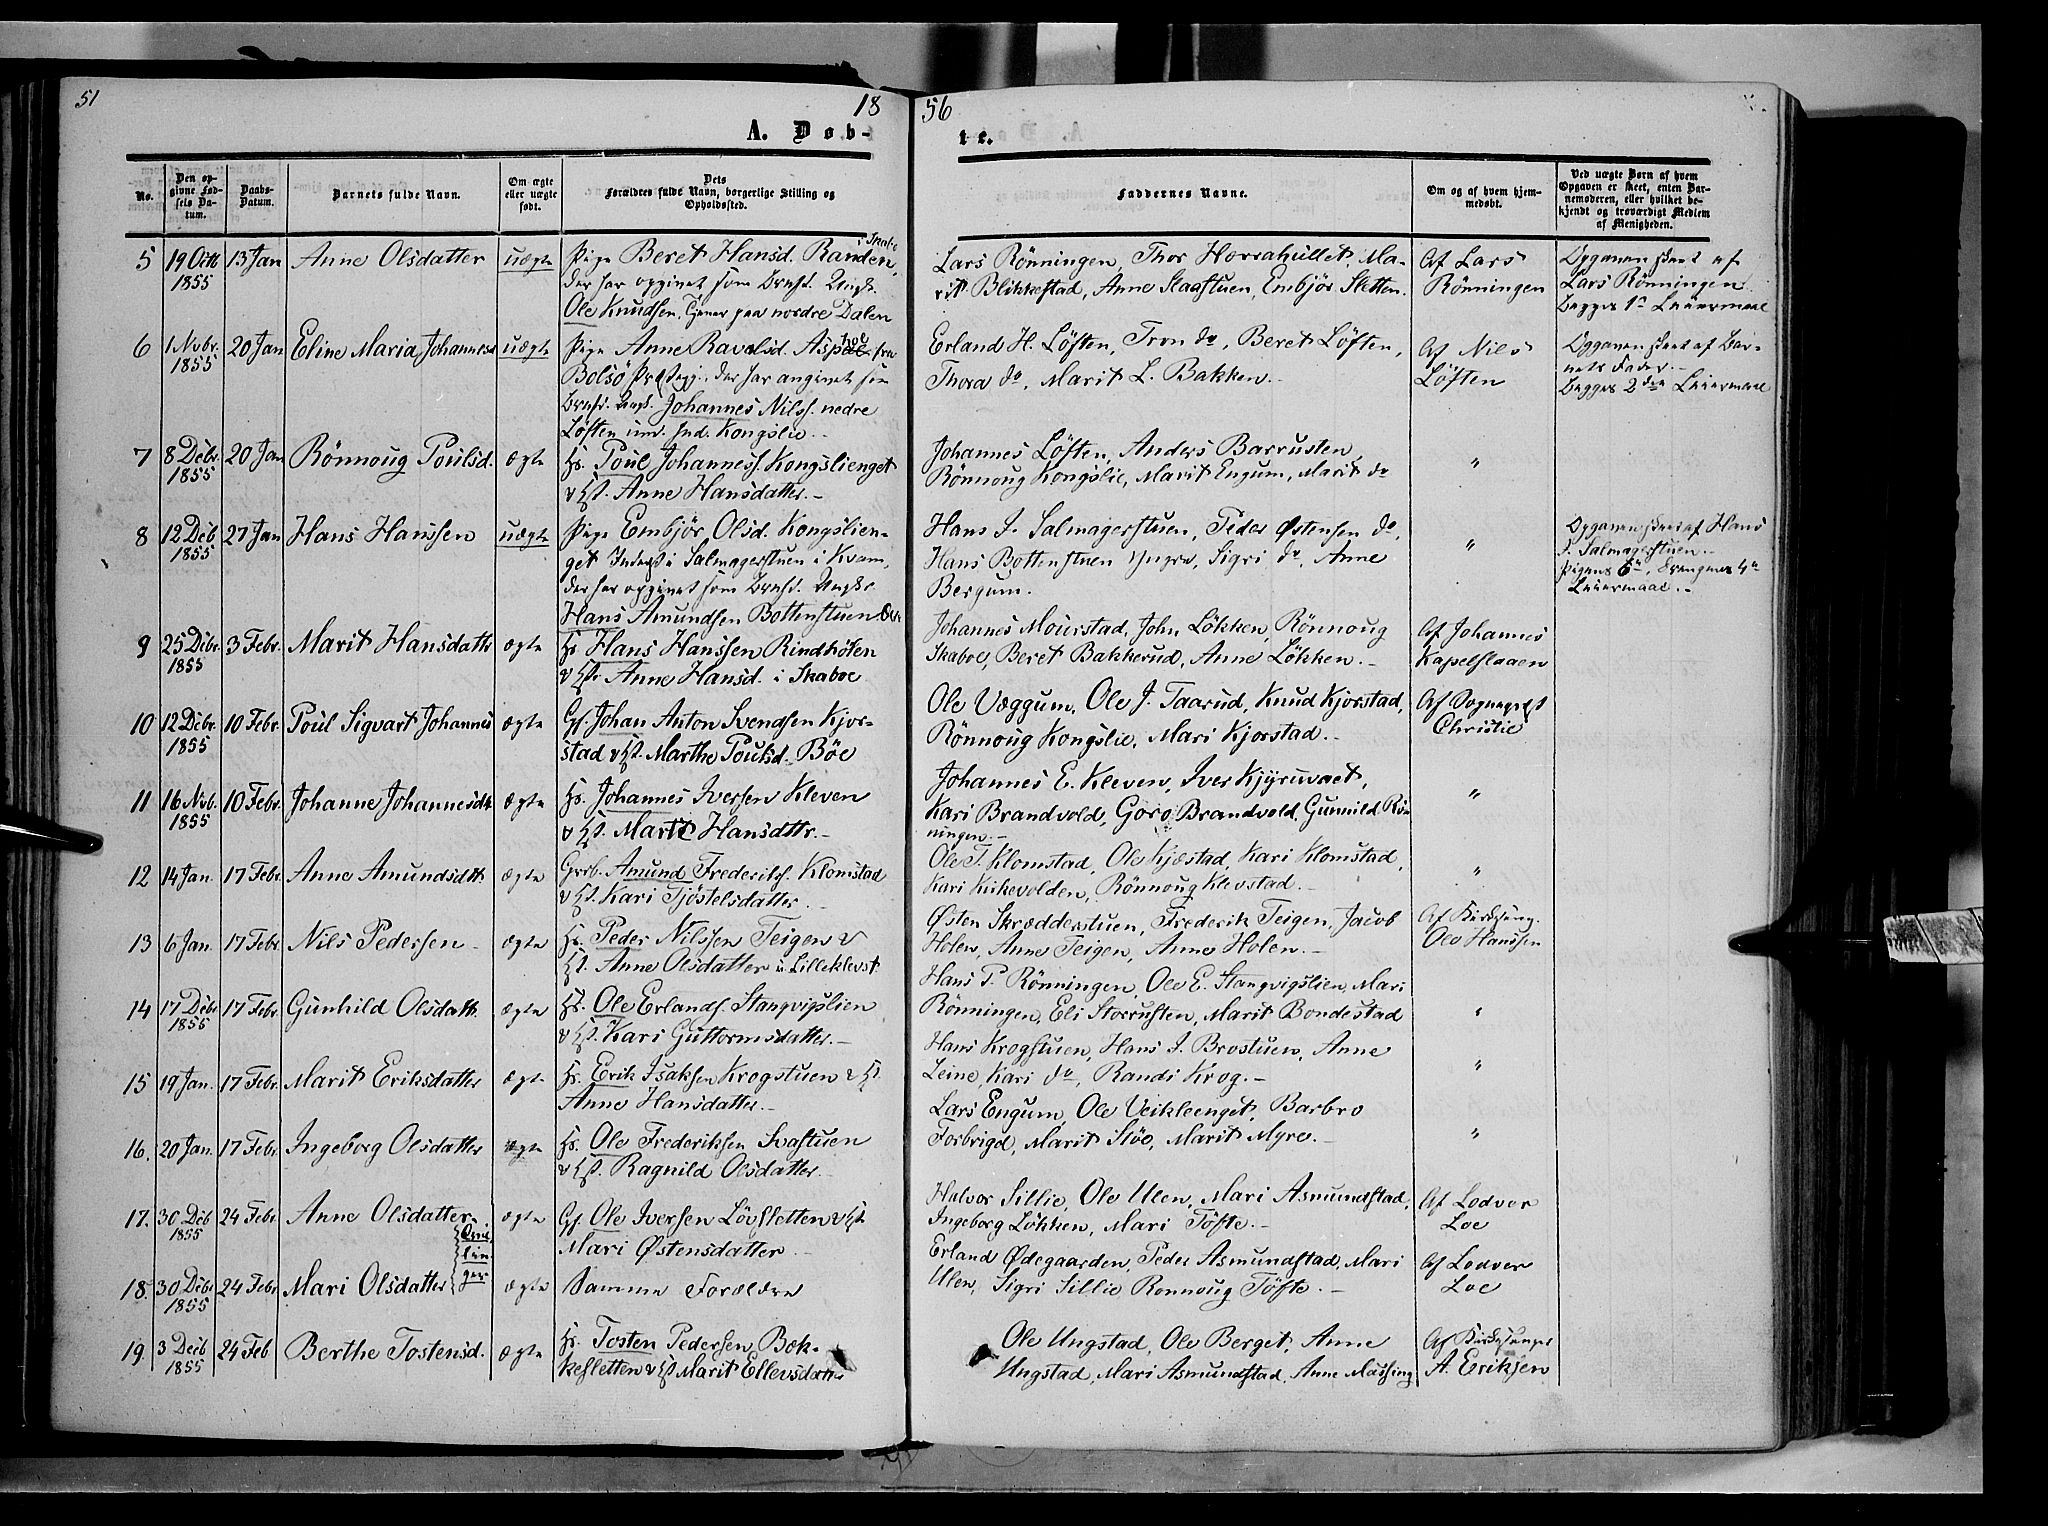 51
18
56
A. Døb-
te.
No.
Den op-
givne Fød-
sels Da-
tum.
Daabs-
Datum.
Barnets fulde Navn.
Om ægte
eller uægte
født.
Dets
Forældres fulde Navn, borgerlige Stilling og
Opholdssted.
Faddernes Navne.
Om og af hvem hjem-
medøbt.
Ved uægte Børn af hvem
Opgaven er skeet, enten Bar-
nemoderen, eller hvilket be-
kjendt og troværdigt Medlem
af Menigheden.
5 19 Octb 1855 13 Jan Anne Olsdatter uægte
Pige Beret Hansd. Randen, i Skabo
der har opgivet som Brnfd. Ungk.
Ole Knudsen, Tjener paa nordre Dalen
Lars Rönningen, Thor Horrahullet, Ma-
rit Blikkestad, Anne Slaastuen, Embjör Sletten.
Af Lars
Rönningen
Opgaven skeet af
Lars Rönningen.
Begges 1ste Leiermaal
6 1 Nvbr. 1855 20 Jan Eline Maria Johannesd uægte
Pige Anne Ravelsd. fra
Bolsö Præstegj., der har angivet som
Brnfd. Ungk. Johannes Nilss. nedre
Löften inv. Ind. Kongslie.
Erland H. Löften, Tron do, Beret Löften,
Thora do, Marit L. Bakken.
Af Nils
Löften
Opgaven skeet af Bar-
nets Fader.
Begges 2den Leiermaal
7 8 Debr. 1855 20 Jan Rönnoug Poulsd. ægte
Hs. Poul Johanness. Kongslienget
& Hst. Anne Hansdatter.
Johannes Löften, Anders Barrusten,
Rönnoug Kongslie, Marit Engum, Marit do
"
8 12 Deb 1855 27 Jan Hans Hanssen uægte
Pige Embjör Olsd. Kongslien-
get Inderst i Salmagerstuen i Kvam,
der har opgivet som Brnfd. Ungkr.
Hans Amundsen Bottenstuen
Hans J. Salmagerstuen, Peder Østensen do,
Hans Bottenstuen yngre, Sigri do, Anne
Bergum.
"
Opgaven skeet af Hans
J. Salmagerstuen.
Pigens 6te, Drengens 4de
Leiermaal.
9 25 Debr. 1855 3 Febr. Marit Hansdatter ægte
Hs Hans Hanssen Rindhölen
& Hst. Anne Hansd. i Skaboe
Johannes Mourstad, John Lökken, Rönnoug
Skaboe, Beret Bakkerud, Anne Lökken.
Af Johannes
Kapelslaaen
10 12 Debr. 1855 10 Febr. Poul Sigvart Johannes ægte
Gf. Johan Anton Svendsen Kjor-
stad & Hst. Marthe Poulsd. Böe
Ole Væggum, Ole J. Taarud, Knud Kjorstad,
Rönnoug Kongslie, Mari Kjorstad.
Af Sognepræst
Christie
11 16 Nvb. 1855 10 Febr. Johanne Johannesdtr ægte
Hs. Johannes Iversen Kleven
& Hst. Marit Hansdttr.
Johannes E. Kleven, Iver Kjyruvaet,
Kari Brandvold, Goro Brandvold, Gunnild Rön-
ningen.
"
12 14 Jan. 17 Febr. Anne Amundsdtt. ægte
Grrb. Amund Frederiks. Klomstad
& Hst. Kari Tjöstelsdatter.
Ole T. Klomstad, Ole Kjæstad, Kari Klomstad,
Kari Kirkevolden, Rönnoug Klevstad.
"
13 6 Jan. 17 Febr. Nils Pedersen ægte
Hs. Peder Nilssen Teigen &
Hst. Anne Olsdatter u. Lilleklevst.
Østen Skrædderstuen, Frederik Teigen, Jacob
Holen, Anne Teigen, Anne Holen.
Af Kirkesang.
Ole Hanssen
14 17 Debr 1855 17 Febr. Gunhild Olsdatt. ægte
Hs. Ole Erlands. Stangvigslien
& Hst. Kari Guttormsdatter.
Hans P. Rönningen, Ole E. Stangvigslien, Mari
Rönningen, Eli Storrusten, Marit Bondestad
"
15 19 Jan. 17 Febr. Marit Eriksdatter ægte
Hs. Erik Isaksen Krogstuen & Hst.
Anne Hansdatter.
Hans Krogstuen, Hans J. Brostuen, Anne
Leine, Kari do, Randi Krog.
"
16. 20 Jan. 17 Febr Ingeborg Olsdatter ægte
Hs. Ole Frederiksen Svastuen
& Hst. Ragnild Olsdatter.
Lars Engum, Ole Veikleenget, Barbro
Forbrigd, Marit Slöe, Marit Myre.
"
17. 30 Deb 1855 24 Febr. Anne Olsdatter ægte
Gf. Ole Iversen Lövsletten & Hst
Mari Østensdatter.
Halvor Sillie, Ole Ulen, Mari Asmundstad,
Ingeborg Lökken, Mari Töfte.
Af Lodver
Loe
Tvil-
lin-
ger
18. 30 Debr 1855 24 Febr Mari Olsdatter ægte
Samme Forældre
Erland Ødegaarden, Peder Asmundstad, Mari
Ulen, Sigri Sillie Ronnoug Töfte.
Af Lodver
Loe
19. 3 Decb 1855 24 Feb Berthe Tostensd. ægte
Hs. Tosten Pedersen Bæk-
kesletten & Hst Marit Ellevsdatter
Ole Ungstad, Ole Berget, Anne
Ungstad, Mari Asmundstad, Anne Massing
Af Kirkesanger
A. Eriksen